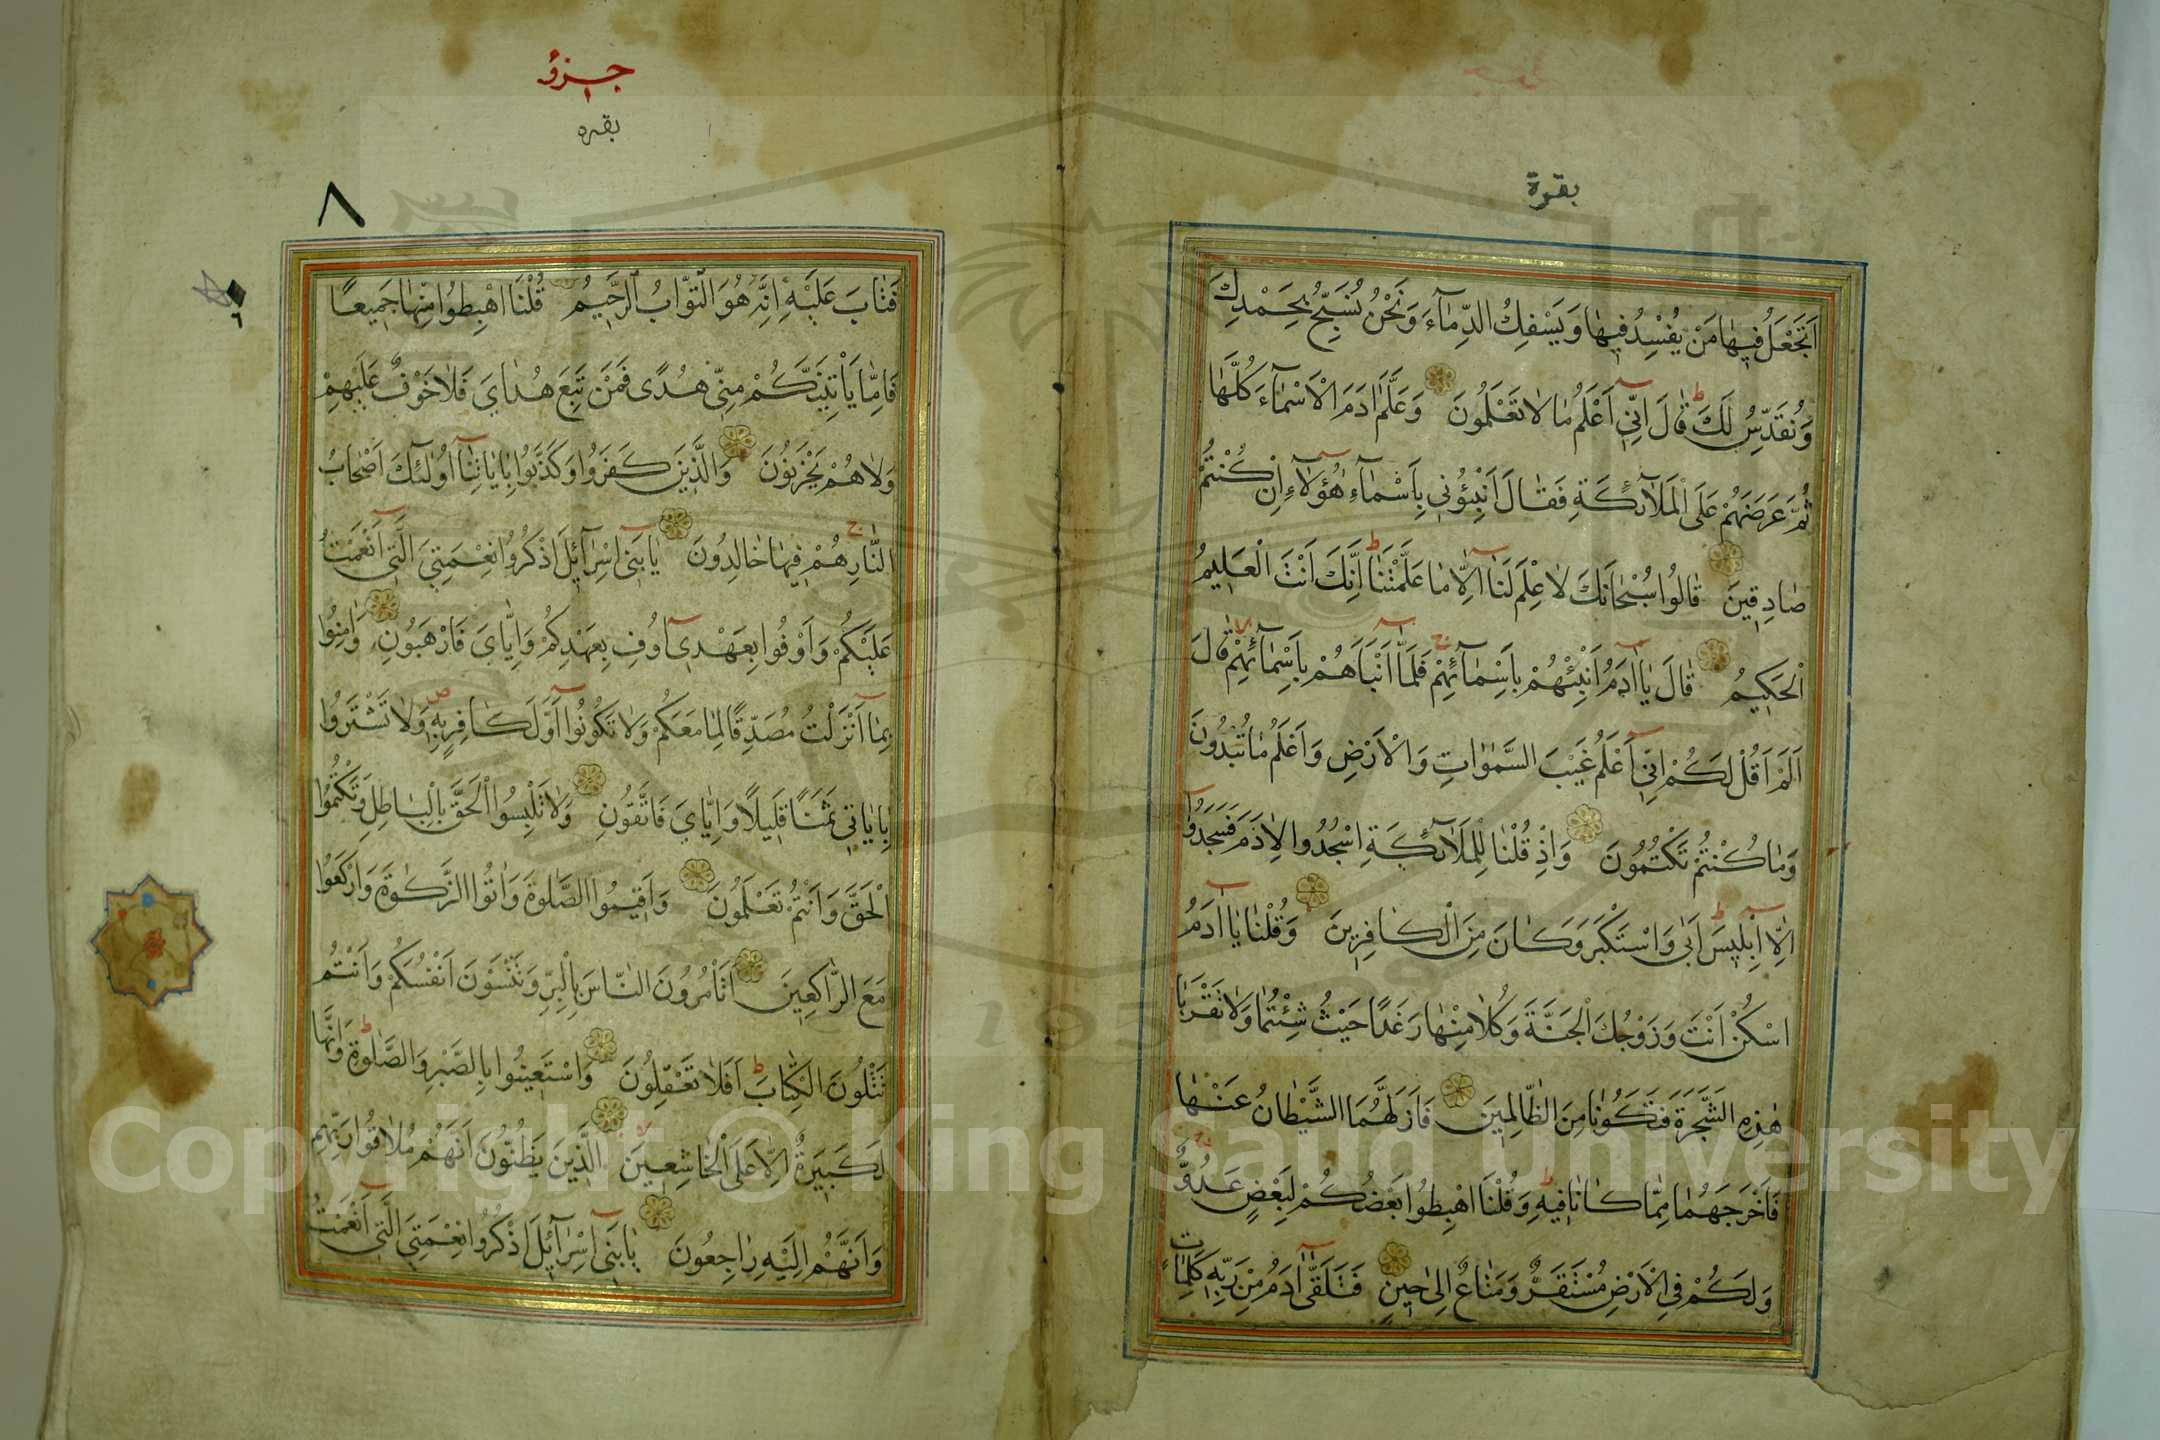 بقرة
اَتَجْعَلُ فِيهَا مَنْ يُفْسِدُ فِيهَا وَيَسْفِكُ الدِّمَاۤءَ وَنَحْنُ نُسَبِّحُ بِحَمْدِكَ
وَنُقَدِّسُ لَكَ قَالَ اِنِّىۤ اَعْلَمُ مَا لَا تَعْلَمُونَ وَعَلَّمَ اٰدَمَ الْاَسْمَاۤءَ كُلَّهَا
ثُمَّ عَرَضَهُمْ عَلَى الْمَلَاۤئِكَةِ فَقَالَ اَنْبِئُونِى بِاَسْمَاۤءِ هٰۤؤُلَاۤءِ اِنْ كُنْتُمْ
صَادِقِينَ قَالُوا سُبْحَانَكَ لَا عِلْمَ لَنَاۤ اِلَّا مَا عَلَّمْتَنَا اِنَّكَ اَنْتَ الْعَلِيمُ
الْحَكِيمُ قَالَ يَاۤ اٰدَمُ اَنْبِئْهُمْ بِاَسْمَاۤئِهِمْ فَلَمَّاۤ اَنْبَاَهُمْ بِاَسْمَاۤئِهِمْ قَالَ
اَلَمْ اَقُلْ لَكُمْ اِنِّىۤ اَعْلَمُ غَيْبَ السَّمٰوَاتِ وَالْاَرْضِ وَاَعْلَمُ مَا تُبْدُونَ
وَمَا كُنْتُمْ تَكْتُمُونَ وَاِذْ قُلْنَا لِلْمَلَاۤئِكَةِ اسْجُدُوا لِاٰدَمَ فَسَجَدُوۤا
اِلَّاۤ اِبْلِيسَ اَبٰى وَاسْتَكْبَرَ وَكَانَ مِنَ الْكَافِرِينَ وَقُلْنَا يَاۤ اٰدَمُ
اسْكُنْ اَنْتَ وَزَوْجُكَ الْجَنَّةَ وَكُلَا مِنْهَا رَغَدًا حَيْثُ شِئْتُمَا وَلَا تَقْرَبَا
هٰذِهِ الشَّجَرَةَ فَتَكُونَا مِنَ الظَّالِمِينَ فَاَزَلَّهُمَا الشَّيْطَانُ عَنْهَا
فَاَخْرَجَهُمَا مِمَّا كَانَا فِيهِ وَقُلْنَا اهْبِطُوا بَعْضُكُمْ لِبَعْضٍ عَدُوٌّ
وَلَكُمْ فِى الْاَرْضِ مُسْتَقَرٌّ وَمَتَاعٌ اِلٰى حِينٍ فَتَلَقّٰۤى اٰدَمُ مِنْ رَبِّهِ كَلِمَاتٍ
جزؤ
بقره
٨
فَتَابَ عَلَيْهِ اِنَّهُ هُوَ التَّوَّابُ الرَّحِيمُ قُلْنَا اهْبِطُوا مِنْهَا جَمِيعًا
فَاِمَّا يَاْتِيَنَّكُمْ مِنِّى هُدًى فَمَنْ تَبِعَ هُدَاىَ فَلَا خَوْفٌ عَلَيْهِمْ
وَلَا هُمْ يَحْزَنُونَ وَالَّذِينَ كَفَرُوا وَكَذَّبُوا بِاٰيَاتِنَاۤ اُولٰۤئِكَ اَصْحَابُ
النَّارِ هُمْ فِيهَا خَالِدُونَ يَا بَنِىۤ اِسْرَاۤئِلَ اذْكُرُوا نِعْمَتِىَ الَّتِىۤ اَنْعَمْتُ
عَلَيْكُمْ وَاَوْفُوا بِعَهْدِىۤ اُوفِ بِعَهْدِكُمْ وَاِيَّاىَ فَارْهَبُونِ وَاٰمِنُوا
بِمَاۤ اَنْزَلْتُ مُصَدِّقًا لِمَا مَعَكُمْ وَلَا تَكُونُوۤا اَوَّلَ كَافِرٍ بِهِ وَلَا تَشْتَرُوا
بِاٰيَاتِى ثَمَنًا قَلِيلًا وَاِيَّاىَ فَاتَّقُونِ وَلَا تَلْبِسُوا الْحَقَّ بِالْبَاطِلِ وَتَكْتُمُوا
الْحَقَّ وَاَنْتُمْ تَعْلَمُونَ وَاَقِيمُوا الصَّلٰوةَ وَاٰتُوا الزَّكٰوةَ وَارْكَعُوا
مَعَ الرَّاكِعِينَ اَتَاْمُرُونَ النَّاسَ بِالْبِرِّ وَتَنْسَوْنَ اَنْفُسَكُمْ وَاَنْتُمْ
تَتْلُونَ الْكِتَابَ اَفَلَا تَعْقِلُونَ وَاسْتَعِينُوا بِالصَّبْرِ وَالصَّلٰوةِ وَاِنَّهَا
لَكَبِيرَةٌ اِلَّا عَلَى الْخَاشِعِينَ الَّذِينَ يَظُنُّونَ اَنَّهُمْ مُلَاقُوا رَبِّهِمْ
وَاَنَّهُمْ اِلَيْهِ رَاجِعُونَ يَا بَنِىۤ اِسْرَاۤئِلَ اذْكُرُوا نِعْمَتِىَ الَّتِىۤ اَنْعَمْتُ
Copyright © King Saud University